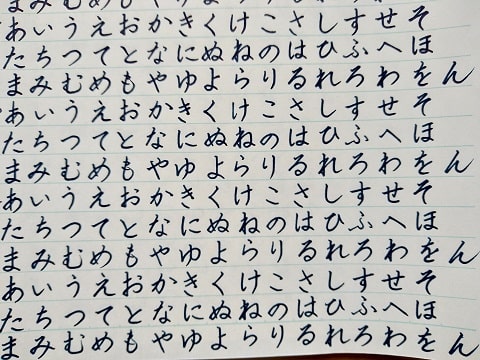 まみむめもやゆよらりるれろわをん
あいうえおかきくけこさしすせそ
たちつてとなにぬねのはひふへほ
まみむめもやゆよらりるれろわをん
あいうえおかきくけこさしすせそ
たちつてとなにぬねのはひふへほ
まみむめもやゆよらりるれろわをん
あいうえおかきくけこさしすせそ
たちつてとなにぬねのはひふへほ
まみむめもやゆよらりるれろわをん
あいうえおかきくけこさしすせそ
たちつてとなにぬねのはひふへほ
まみむめもやゆよらりるれろわをん